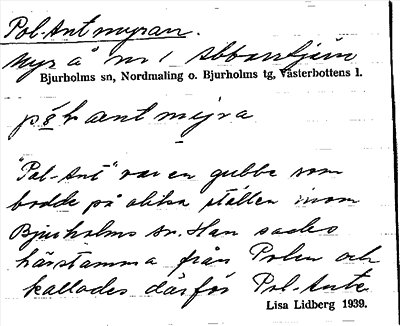 Pol-Antmyran.
Myr å nr 1 Abborrtjärn
Bjurholms sn, Nordmaling o. Bjurholms tg, Västerbottens l.
antmyra
"Pol-Ant" var en gubbe som
bodde på olika ställen inom
Bjurholms sn. Han sades
härstamma från Polen och
kallades därför Pol-Ante
Lisa Lidberg 1939.